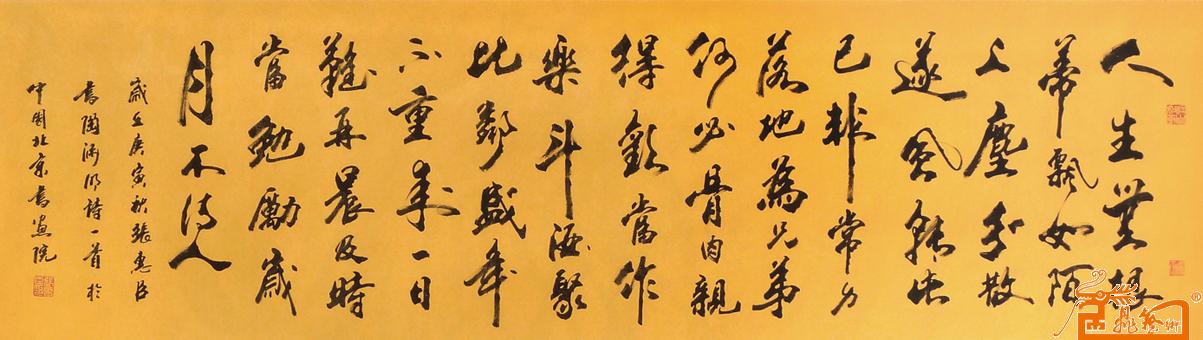 人生無根
蒂飄如陌
上塵分散
逐風轉此
已非常身
落地為兄弟
何必骨肉親
得歡當作
樂斗酒聚
比鄰盛年
不重來一日
難再晨及時
當勉勵歲
月不待人
歲在庚寅秋張惠臣
書陶淵明詩一首於
中國北京書畫院